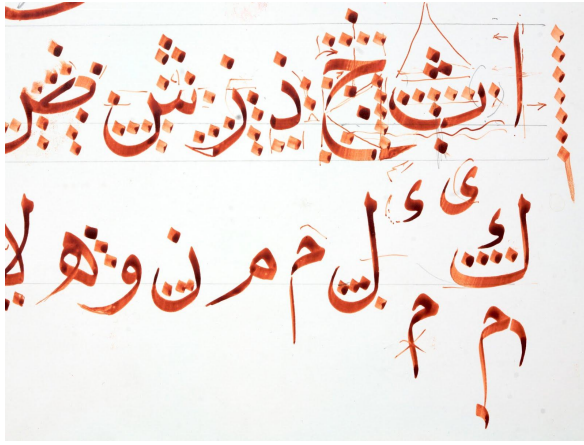 ا ث خ ذ ز ش ض
ك ل م م ن و ه لا
م م